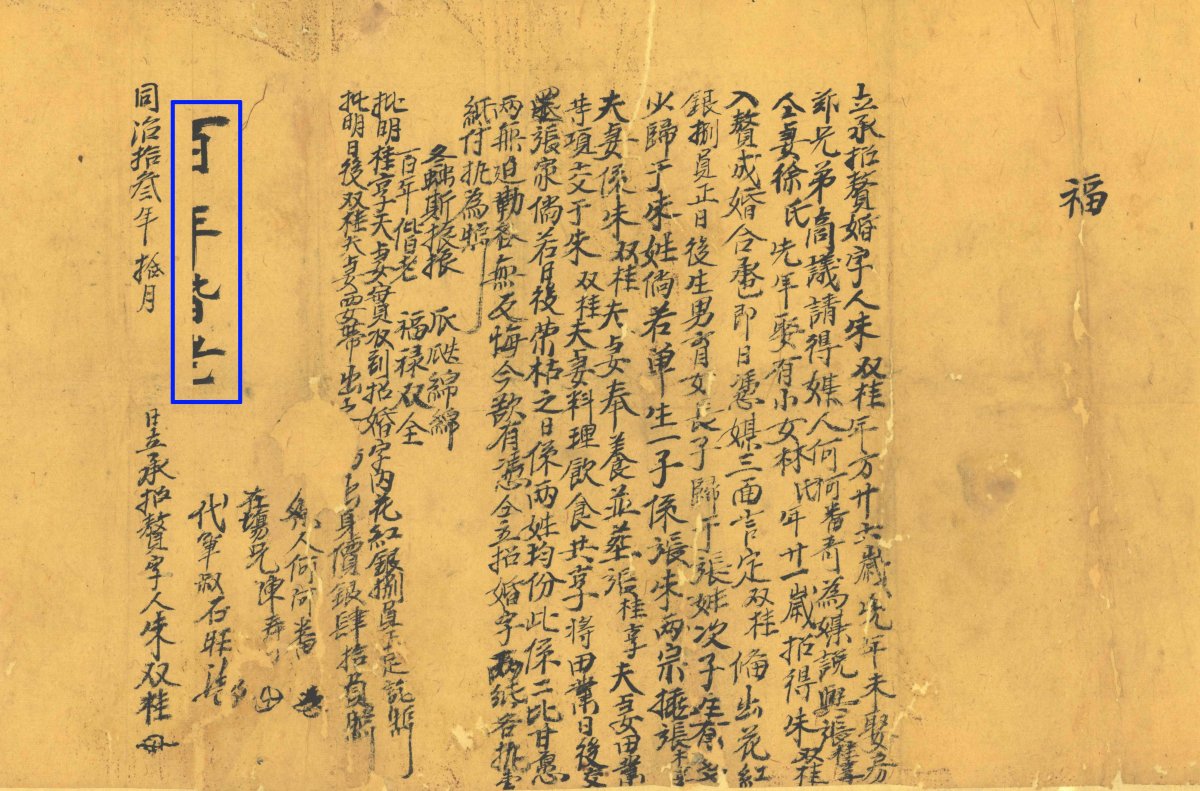 福
立承招贅婚字人朱双桂年方廿六歲先年未娶房
郎兄弟商議請得媒人何阿番哥為媒說與張桂享
仝妻徐氏先年娶有小女林氏年廿一歲招得朱双桂
入贅成婚合巹即日憑媒三面言定双桂備出花紅
銀捌員正日後生男育女長子歸于張姓次子生
以歸于朱姓倘若单生一子係張朱两宗
夫妻係朱双桂夫妻奉養並塟張桂享夫妻田業
等項交于朱双桂夫妻料理飲食共享將田業日後交
還張家倘若日後榮枯之日係两姓均份此係二比甘愿
两無迫勒各無反悔今欲有憑仝立招婚字两紙各执壹
紙付执為照
螽斯振振 瓜瓞綿綿
百年偕老 福禄双全
批明桂享夫妻實收到招婚字內花紅銀捌員正足訖照
批明日後双桂夫妻要帶出 身價銀肆拾員照
媒人何阿番
在場兄陳
代筆叔石旺
百年偕老
同治拾叁年 月 日立承招贅字人朱双桂